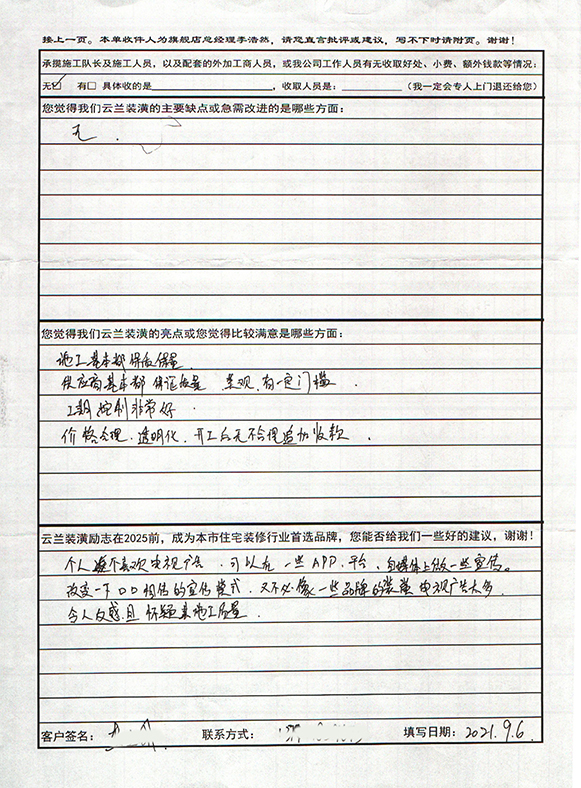 接上一页。本单收件人为旗舰店总经理李浩然，请您直言批评或建议，写不下时请附页。谢谢！
承揽施工队长及施工人员，以及配套的外加工商人员，或我公司工作人员有无收取好处、小费、额外钱款等情况：
无☑ 有□ 具体收的是 ，收取人员是： （我一定会专人上门退还给您）
您觉得我们云兰装潢的主要缺点或急需改进的是哪些方面：
无.
您觉得我们云兰装潢的亮点或您觉得比较满意是哪些方面：
施工基本都保质保量.
供应商基本都保证质量 客观.有一定门槛.
工期控制非常好.
价格合理.透明化.开工后无不合理追加收款.
云兰装潢励志在2025前，成为本市住宅装修行业首选品牌，您能否给我们一些好的建议，谢谢！
个人不喜欢电视广告.可以在一些APP.平台.自媒体上做一些宣传。
改变一下口口相传的宣传模式.又不必像一些品牌的装潢电视广告太多.
令人反感.且怀疑其施工质量.
客户签名： 联系方式： 填写日期：2021.9.6